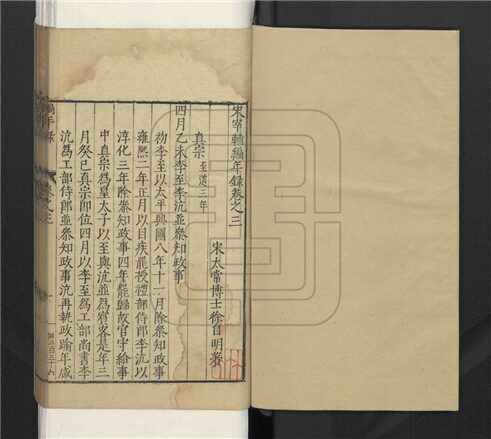 宋宰輔編年錄卷之三
宋太常博士徐自明著
真宗至道三年
四月乙未李至李沆並參知政事
初李至以太平興國八年十一月除參知政事
雍熙二年正月以目疾罷授禮部侍郎李沆以
淳化三年除參知政事四年罷歸故官守給事
中真宗為皇太子以至與沆並為賓客是年三
月癸巳真宗即位四月以李至為工部尚書李
沆為工部侍郎並參知政事沆再執政踰年咸